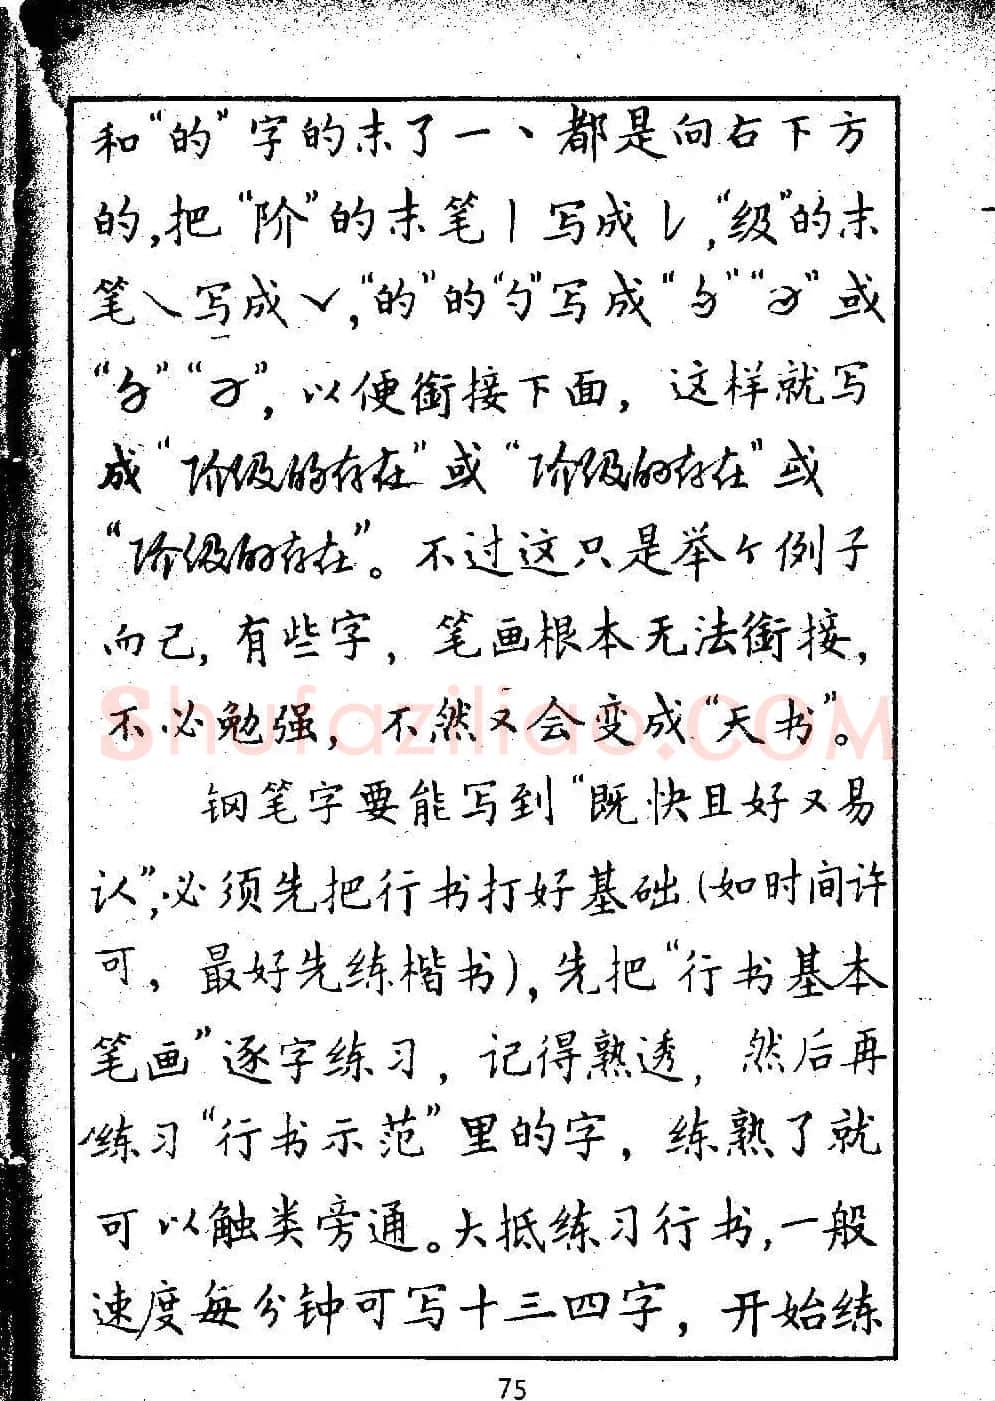 和“的”字的末了一、都是向右下方
的,把“阶”的末笔丨写成㇄,“级”的末
笔㇏写成✓,“的”的“勺”写成“
”或
“
”,以便衔接下面,这样就写
成“阶级的存在”或“阶级的存在”或
“阶级的存在”。不过这只是举个例子
而已,有些字,笔画根本无法衔接,
不必勉强,不然又会变成“天书”。
钢笔字要能写到“既快且好又易
认”,必须先把行书打好基础(如时间许
可,最好先练楷书),先把“行书基本
笔画”逐字练习,记得熟透,然后再
练习“行书示范”里的字,练熟了就
可以触类旁通。大抵练习行书,一般
速度每分钟可写十三四字,开始练
75
Shufaziliao.COM